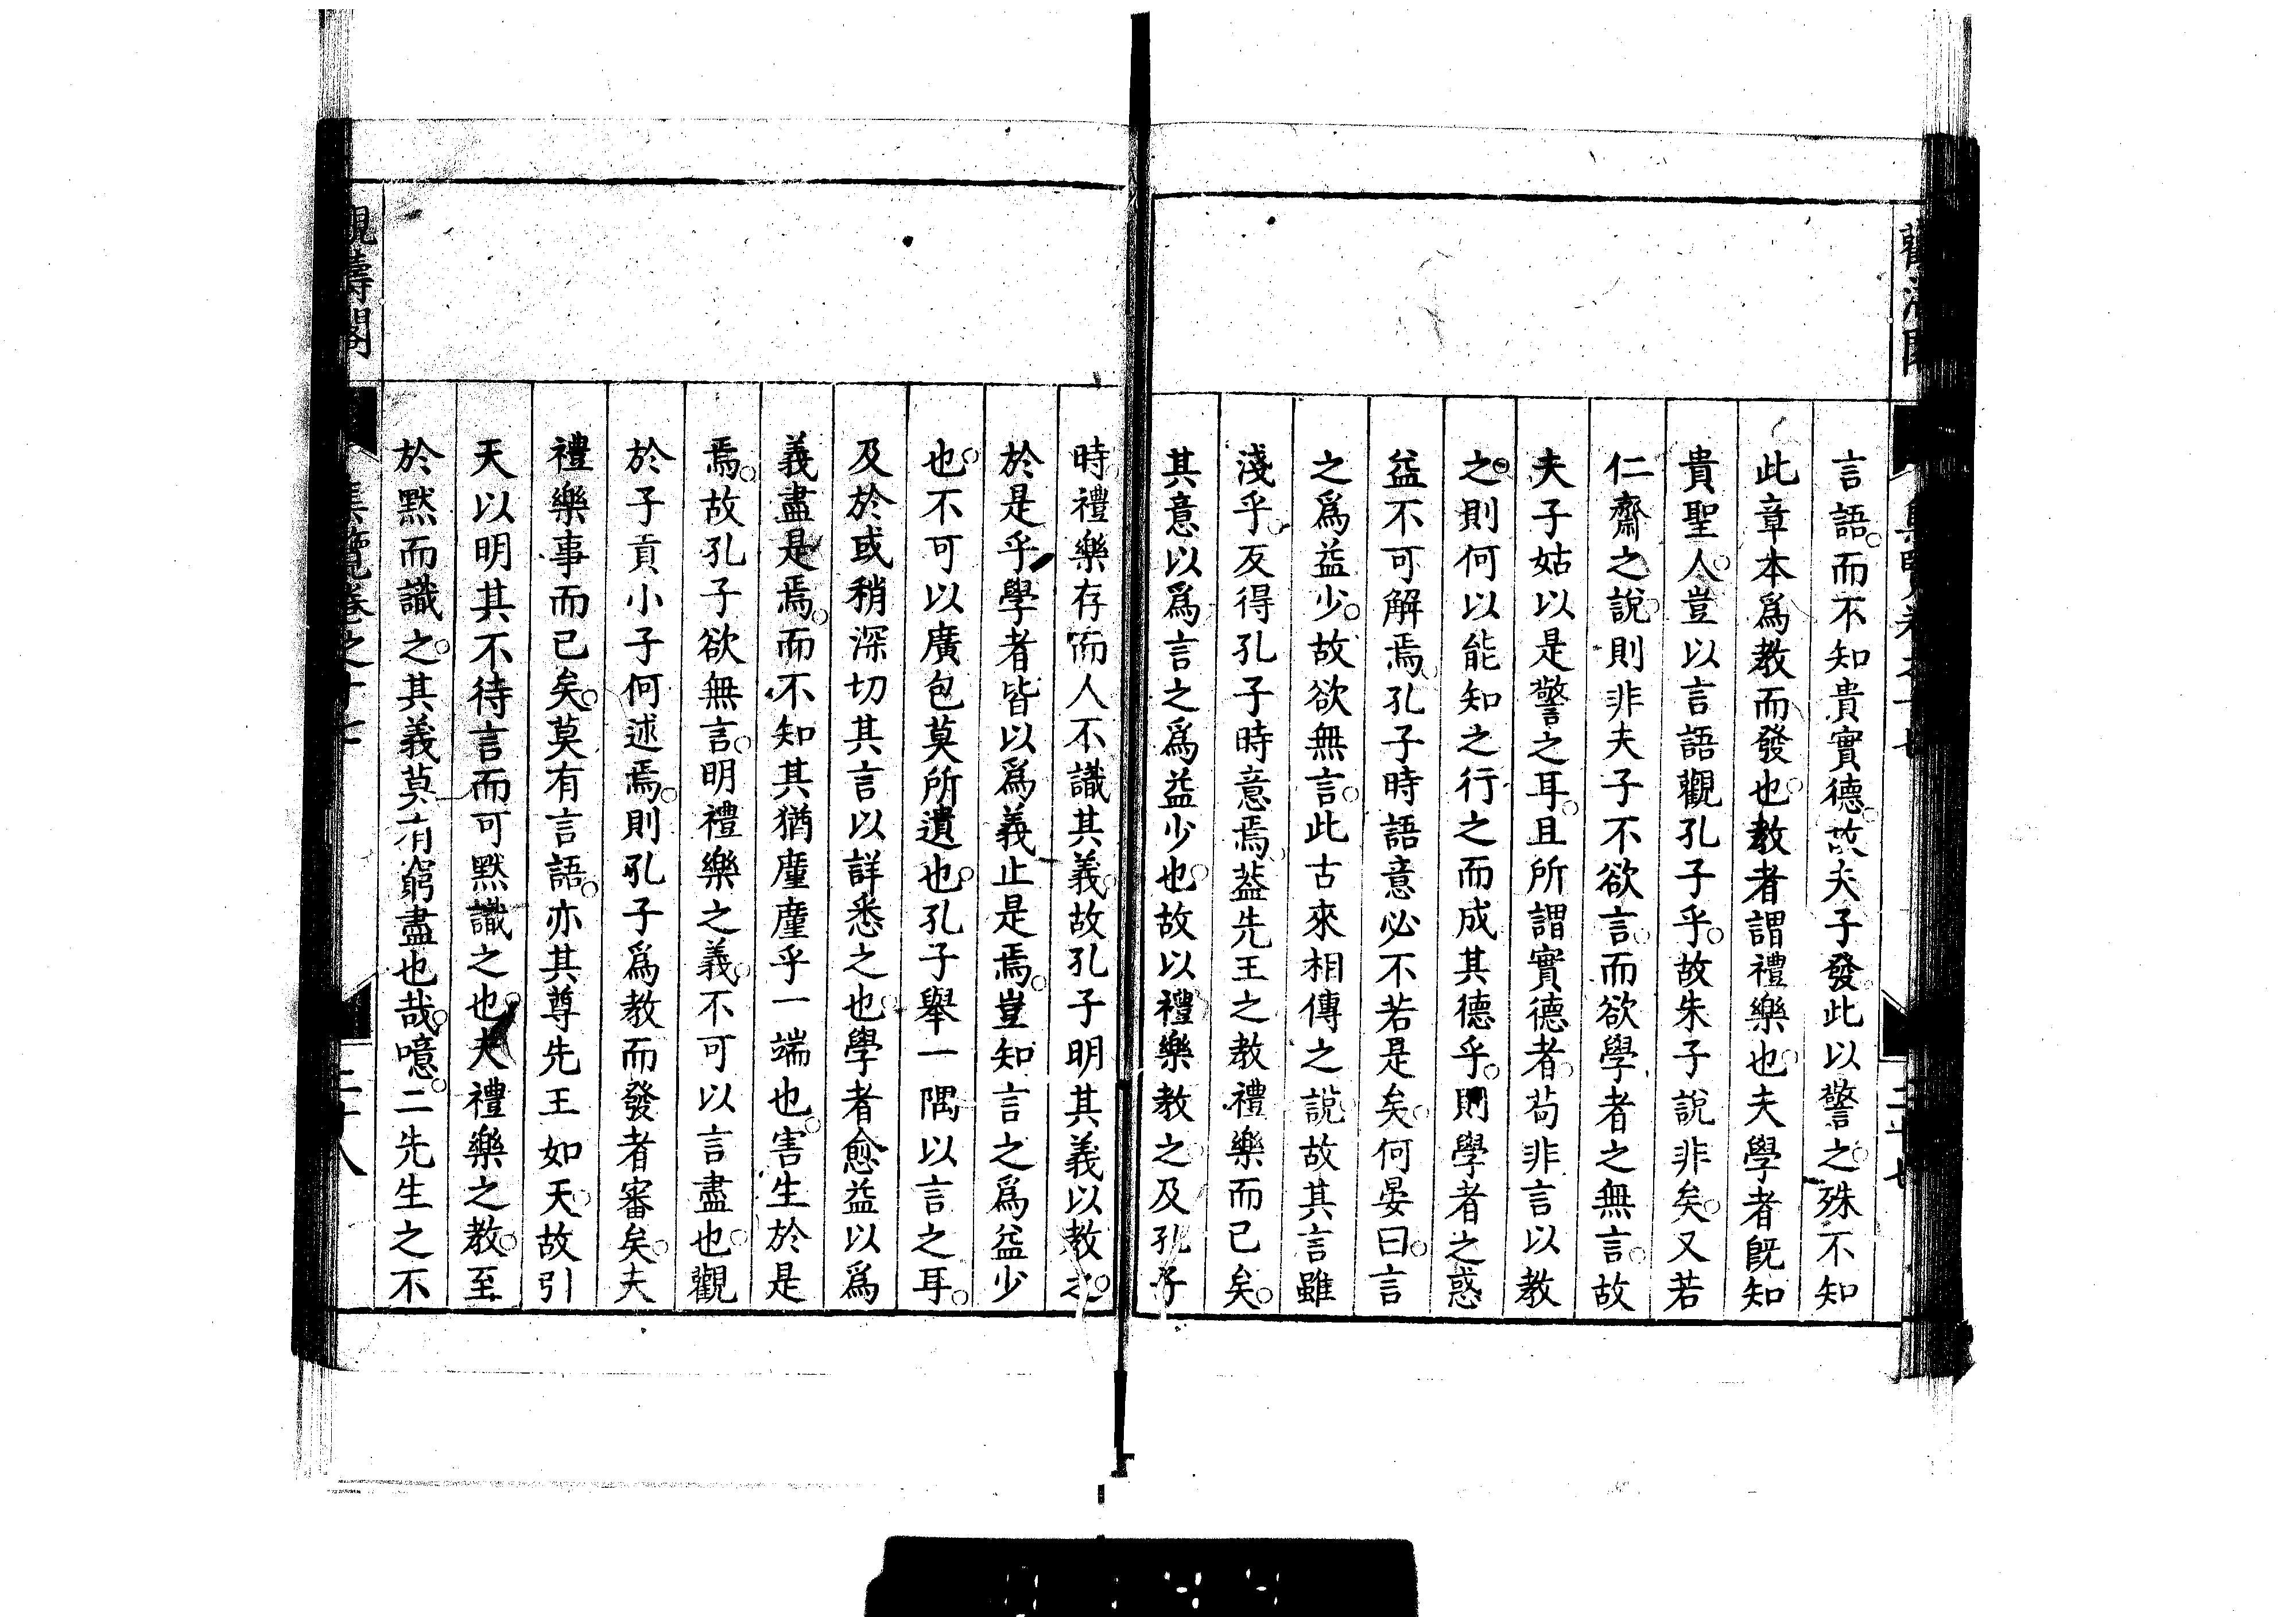 言語而不知貴實德故夫子發此以警之殊不知
此章本爲教而發也教者謂禮樂也夫學者旣知
貴聖人豈以言語觀孔子乎故朱子說非矣又若
仁齋之說則非夫子不欲言而欲學者之無言故
夫子姑以是警之耳且所謂實德者苟非言以教
之則何以能知之行之而成其德乎則學者之惑
益不可解焉孔子時語意必不若是矣何晏曰言
之爲益少故欲無言此古來相傳之說故其言雖
淺乎反得孔子時意焉蓋先王之教禮樂而已矣
其意以爲言之爲益少也故以禮樂教之及孔子
時禮樂存而人不識其義故孔子明其義以教之
於是乎學者皆以爲義止是焉豈知言之爲益少
也不可以廣包莫所遺也孔子舉一隅以言之耳
及於或稍深切其言以詳悉之也學者愈益以爲
義盡是焉而不知其猶廑廑乎一端也害生於是
焉故孔子欲無言明禮樂之義不可以言盡也觀
於子貢小子何述焉則孔子爲教而發者審矣夫
禮樂事而已矣莫有言語亦其尊先王如天故引
天以明其不待言而可默識之也夫禮樂之教至
於默而識之其義莫有窮盡也哉噫二先生之不
集覽卷之十七
二十八